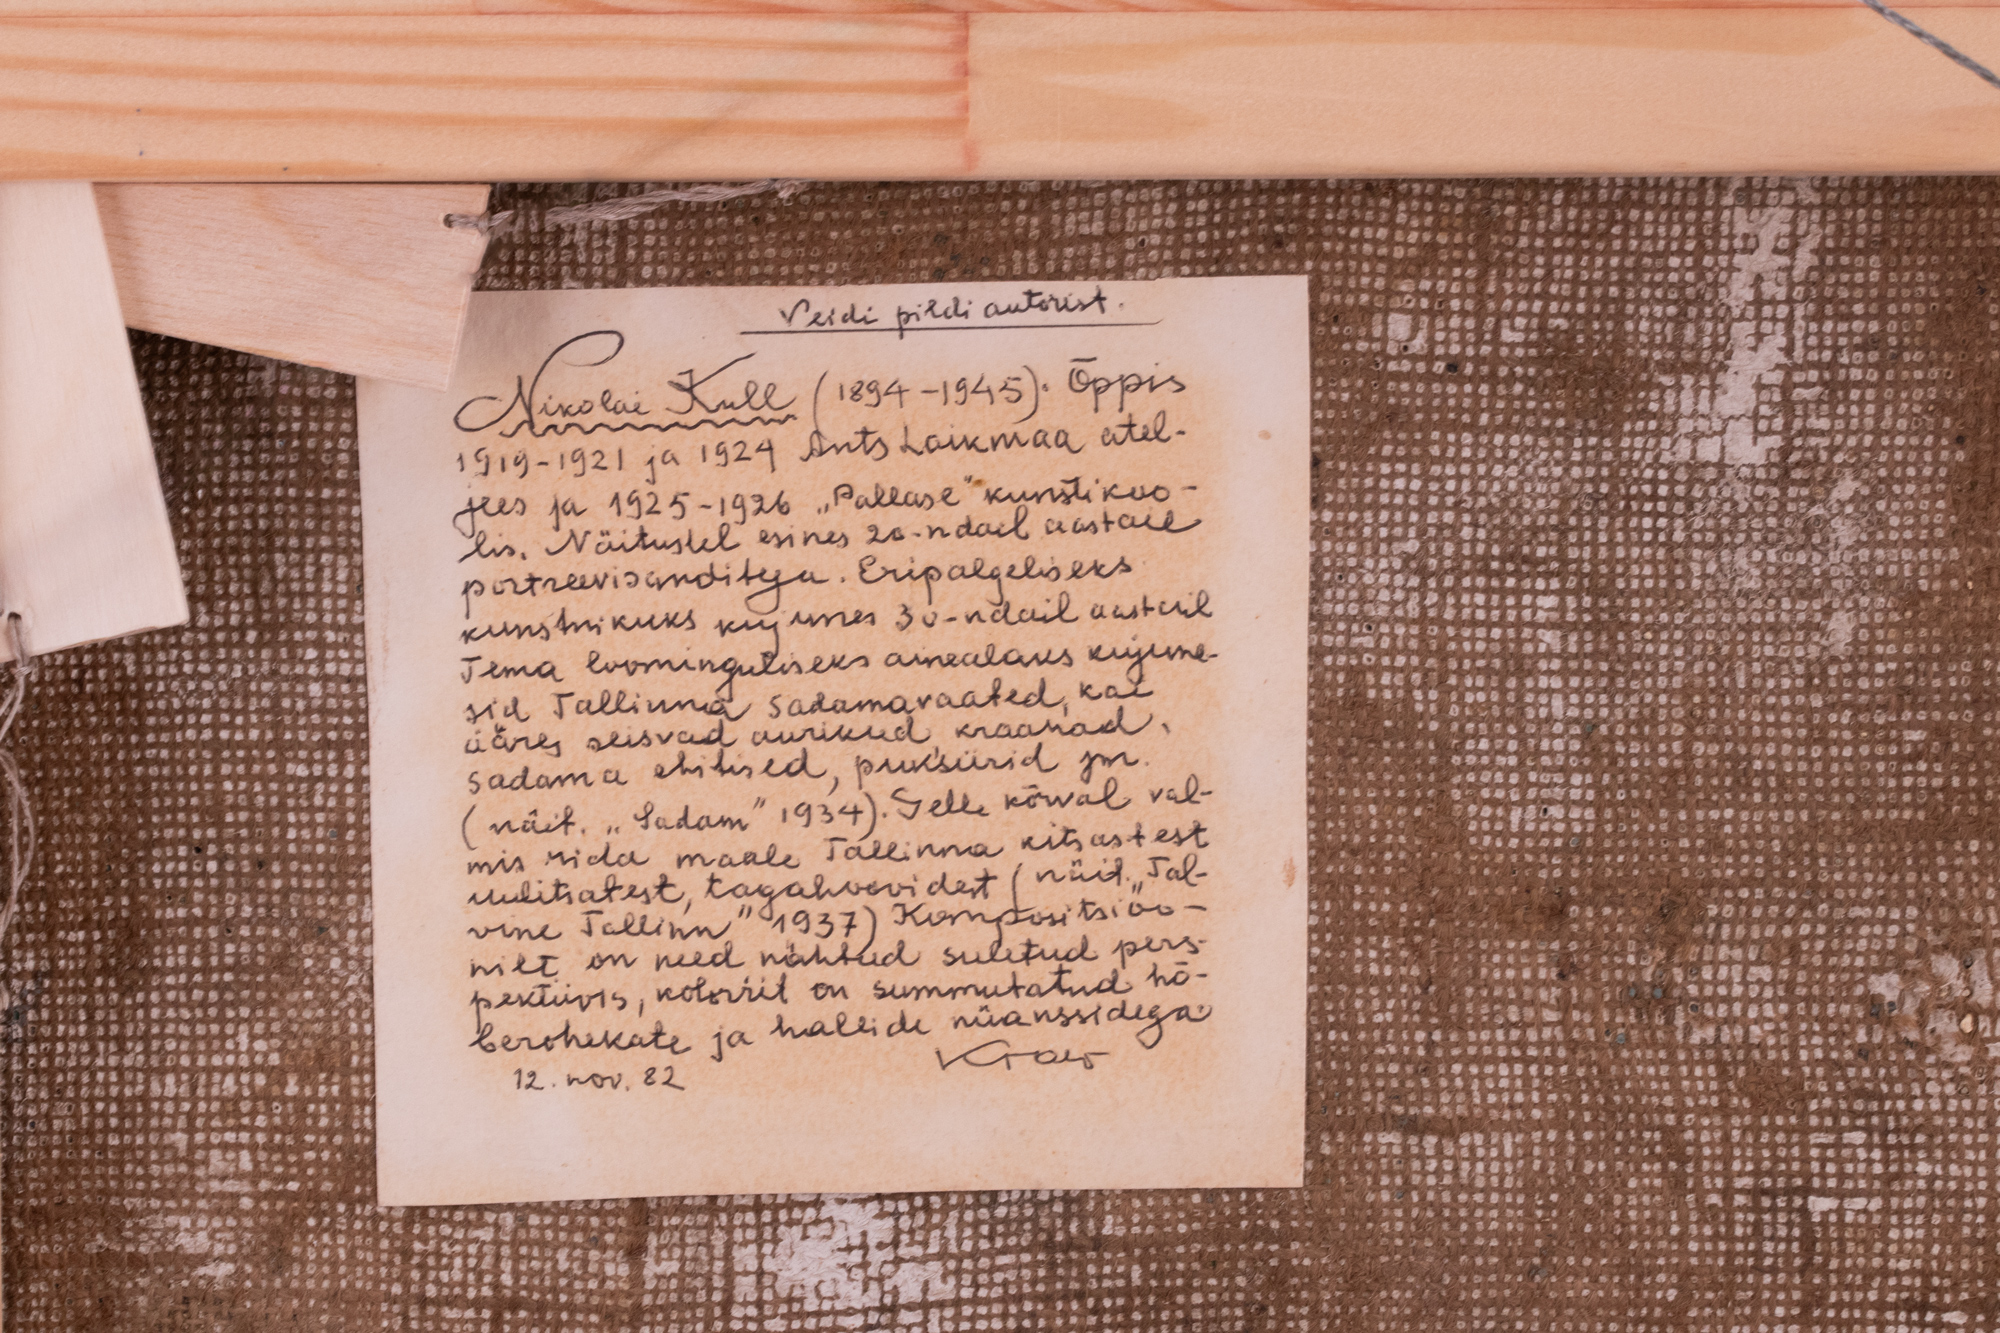 Veidi pildi autorist.
Nikolai Kull (1894-1945). Õppis
1919-1921 ja 1924 Ants Laikmaa atel-
jees ja 1925-1926 „Pallase" kunstikoo-
lis. Näitustel esines 20-ndail aastail
portreevisanditega. Eripalgeliseks
kunstnikuks kujunes 30-ndail aastail
Tema loominguliseks ainealaks kujune-
sid Tallinna sadamavaated, kai
ääres seisvad aurikud kraanad,
sadama ehitised, puksiirid jm.
(näit. „Sadam" 1934). Selle kõrval val-
mis rida maale Tallinna kitsastest
uulitsatest, tagahoovidest (näit. „Tal-
vine Tallinn" 1937) Kompositsioo-
nilt on need nähtud suletud pers-
pektiivis, koloriit on summutatud hõ-
berohekate ja hallide nüanssidega.
12. nov. 82